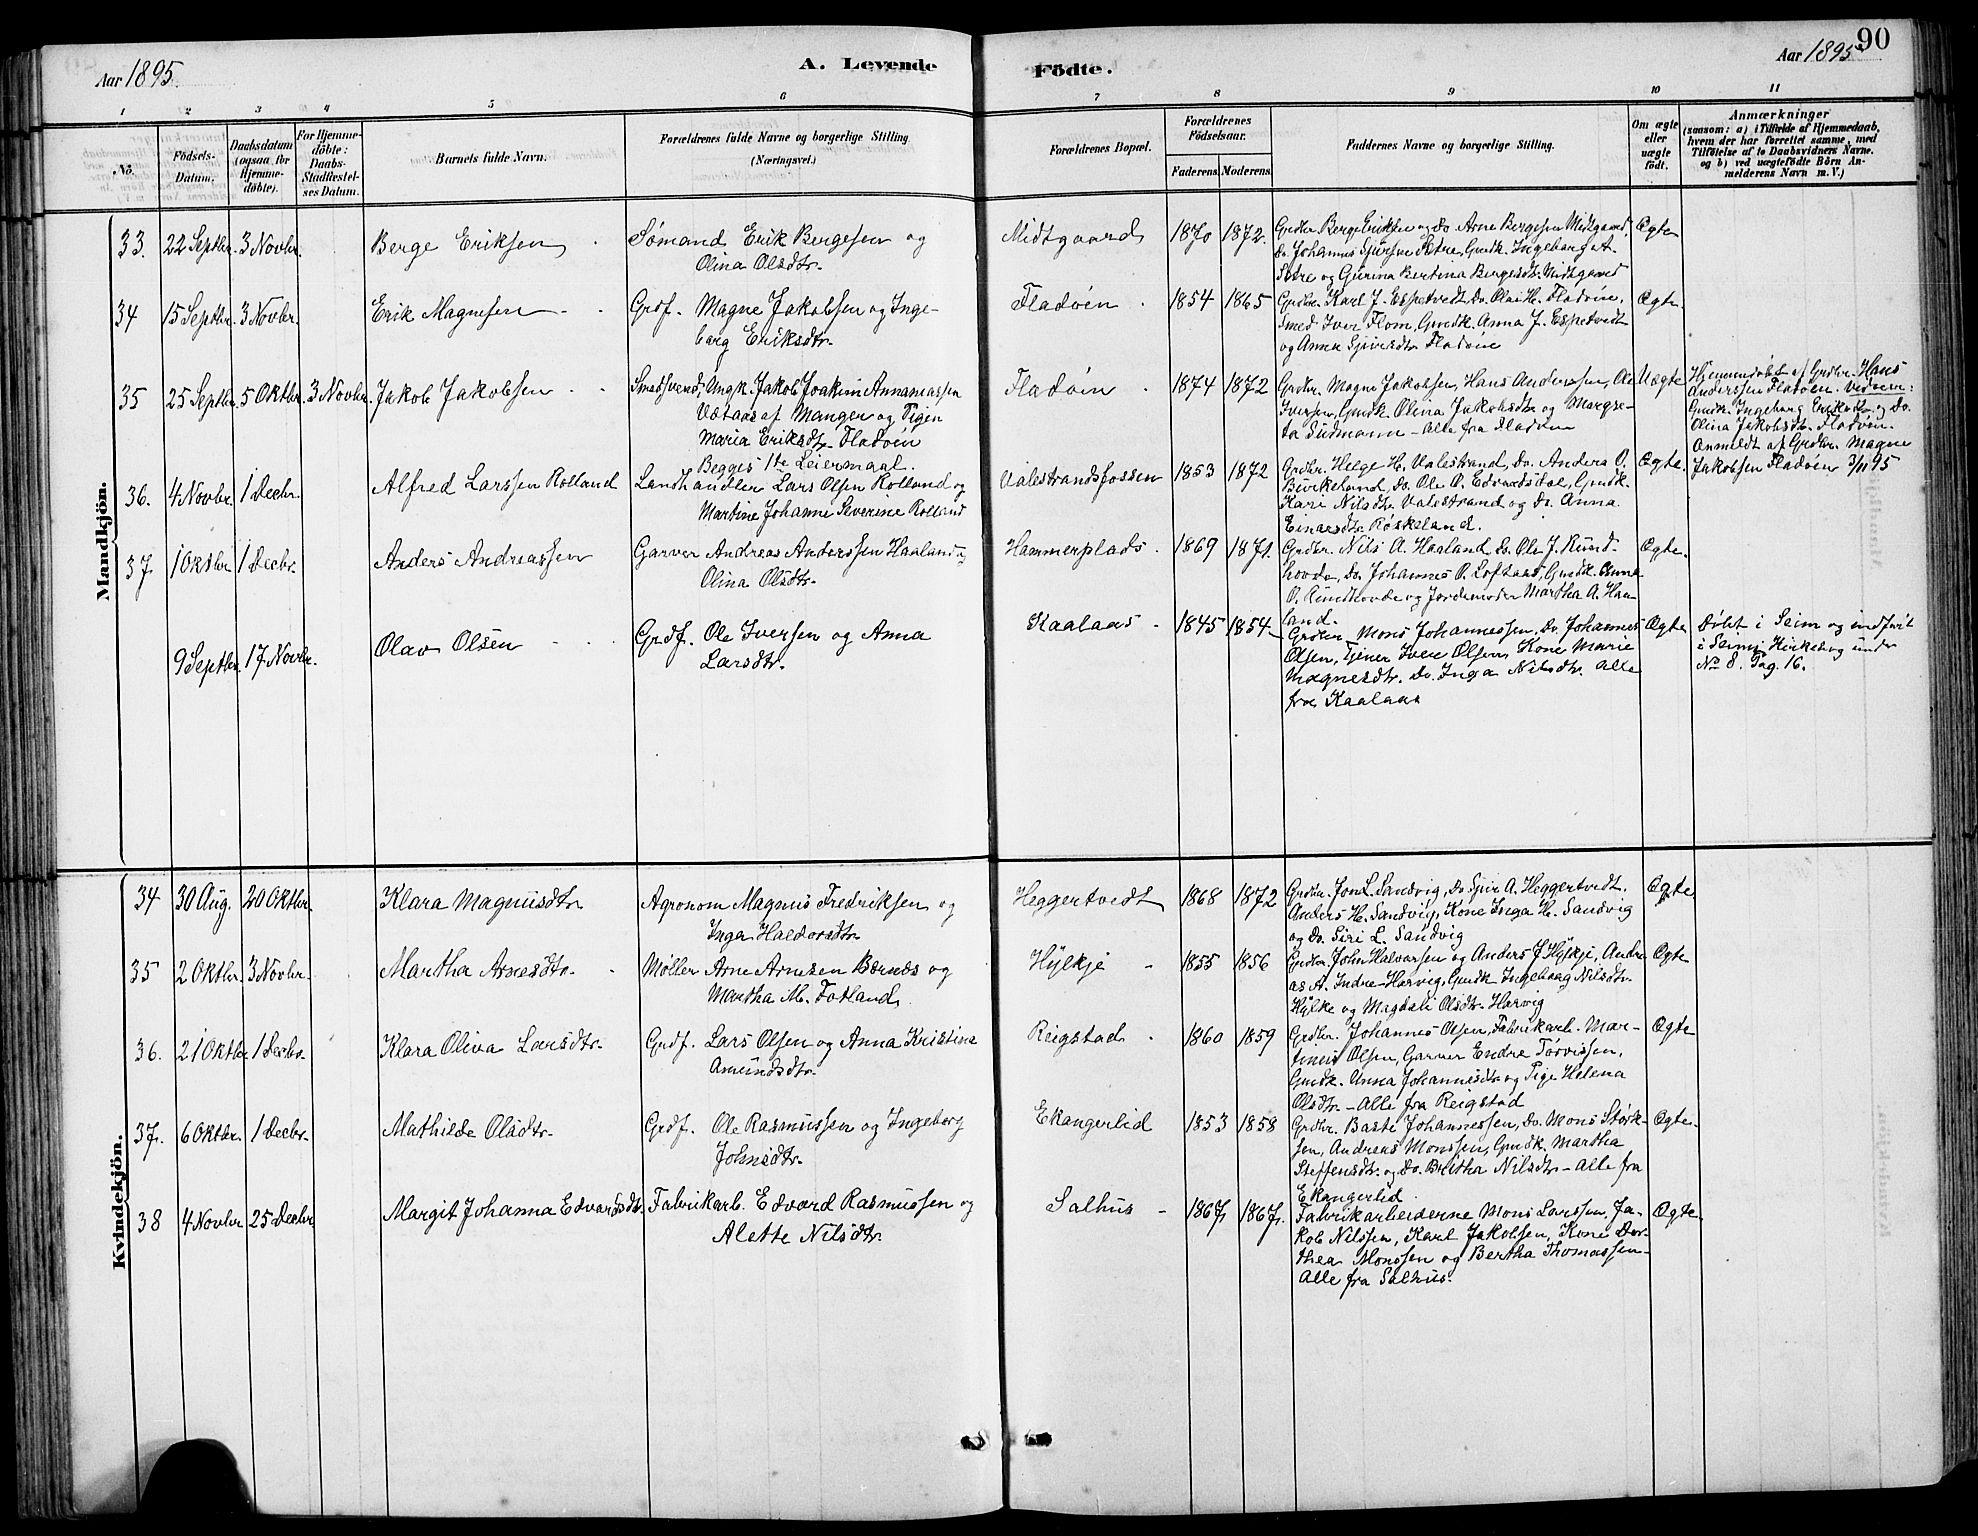 Aar 1895.
A. Levende Födte.
Aar 1895
90
1 2 3 4 5 6 7 8 9 10 11
No.
Födsels-Datum.
Daabsdatum (ogsaa for Hjemmedöbte).
For Hjemmedöbte: Daabs-Stadfæstelses Datum.
Barnets fulde Navn.
Forældrenes fulde Navne og borgerlige Stilling. (Næringsvei.)
Forældrenes Bopæl.
Forældrenes Födselsaar.
Faderens. Moderens.
Faddernes Navne og borgerlige Stilling.
Om ægte eller uægte födt.
Anmærkninger
(saasom: a) i Tilfælde af Hjemmedaab,
hvem der har forrettet samme, med
Tilföielse af to Daabsvidners Navne.
og b) ved uægtefödte Börn An-
melderens Navn m. V.)
Mandkjön.
33. 22 Septbr. 3 Novbr. Berge Eriksen Sømand Erik Bergesen og
Olina Olsdtr.
Midtgaard 1870 1872.
Grdbr Berge Eriksen og Do Arne Bergesen Midtgaard,
Do. Johannes Sjursen Sætre, Gmdk. Ingeborg A.
Sætre og Gurina Bertina Bergesdtr Midtgaard
Ægte
34 15 Septbr. 3 Novbr. Erik Magnesen Grdf. Magne Jakobsen og Inge-
borg Eriksdtr.
Fladøen 1854 1865
Grdbr. Karl J. Espetvedt Do. Olai H. Fladøen,
Smed Iver Flom, Gmdk. Anna J. Espetvedt
og Anna Sjursdtr Fladøen
Ægte
35 25 Septbr. 5 Oktbr. 3 Novbr. Jakob Jakobsen Smedsvend, Ungk. Jakob Joakim Annaneassen
Vetaas af Manger og Pigen
Maria Eriksdtr. Fladøen
Begges 1te Leiermaal.
Fladøen 1874 1872
Grdbr. Magne Jakobsen, Hans Anderssen, Ole
Iversen, Gmdk Olina Jakobsdtr og Margre-
ta Sudmann - Alle fra Fladøen
Uægte
Hjemmedøbt af Grdbr. Hans
Anderssen Fladøen. Vidner:
Gmdk. Ingeborg Eriksdtr og Do.
Olina Jakobsdtr. Fladøen.
Anmeldt af Grdbr. Magne
Jakobsen Fladøen 3/11 95
36. 4 Novbr. 1 Decbr. Alfred Larssen Rolland Landhandler Lars Olsen Rolland og
Martine Johanne Severine Rolland
Valestrandsfossen 1853 1872
Grdbr. Helge H. Valestrand, Do. Anders O.
Birkeland, Do. Ole O. Edvardsdal, Gmdk.
Kari Nilsdtr Valestrand og Do. Anna
Einarsdtr Røskeland.
Ægte.
37. 1 Oktbr. 1 Decbr. Anders Andreassen Garver Andreas Anderssen Haaland og
Olina Olsdtr.
Hammerplads. 1869 1871.
Grdbr. Nils A. Haaland Do. Ole J. Rund-
hovde, Do. Johannes O. Loftaas, Gmdk. Anna
O. Rundhovde og Jordemoder Martha A. Haa-
land.
Ægte.
9 Septbr. 17 Novbr. Olav Olsen Grdf. Ole Iversen og Anna
Larsdtr.
Kaalaas 1845 1854
Grdbr. Mons Johannessen, Do. Johannes
Olsen, Tjener Iver Olsen, Kone Marie
Magnesdtr. Do. Inga Nilsdtr. Alle
fra Kaalaas
Ægte
Døbt i Seim og indført
i Seims Kirkebog under
No 8. Pag. 16.
Kvindekjön.
34 30 Aug. 20 Oktbr. Klara Magnusdtr. Agronom Magnus Fredriksen og
Inger Haldorsdtr.
Heggertvedt 1868 1872
Grdbr. Jon L. Sandvig, Do. Sjur A. Heggertvedt.
Anders H. Sandvig, Kone Inga H. Sandvig
og Do. Siri L. Sandvig
Ægte
35 2 Oktbr. 3 Novbr. Martha Arnesdtr. Møller Arne Arnesen Børnes og
Martha M. Fotland.
Hylkje 1855 1856
Grdbr. John Halvorsen og Anders J Hylkje, Andre-
as A. Indre-Harvig, Gmdk Ingeborg Nilsdtr.
Hylke og Magdali Olsdtr. Harvig
Ægte
36. 21 Oktbr 1 Decbr. Klara Oliva Larsdtr. Grdf. Lars Olsen og Anna Kristina
Amundsdtr.
Reigstad 1860 1859
Grdbr. Johannes Olsen, Fabrikarb. Mar-
tinus Olsen, Garver Endre
Gmdk. Anna Johannesdtr og Pige Helena
Olsdtr. - Alle fra Reigstad
Ægte
37. 6 Oktbr. 1 Decbr. Mathilde Olsdtr. Grdf. Ole Rasmussen og Ingeborg
Johnsdtr.
Ekangerlid 1853 1858
Grdbr. Baste Johannessen, Do. Mons Størk-
sen, Andreas Monssen, Gmdk. Martha
Steffensdtr. og Do. Britha Nilsdtr - Alle fra
Ekangerlid.
Ægte.
38 4 Novbr 25 Decbr Margit Johanna Edvardsdtr. Fabrikarb. Edvard Rasmussen og
Alette Nilsdtr.
Salhus 1867. 1867.
Fabrikarbeiderne Mons Larssen, Ja-
kob Nilssen, Karl Jakobsen, Kone Dor-
thea Monssen og Bertha Thomassen
Alle fra Salhus.
Ægte.